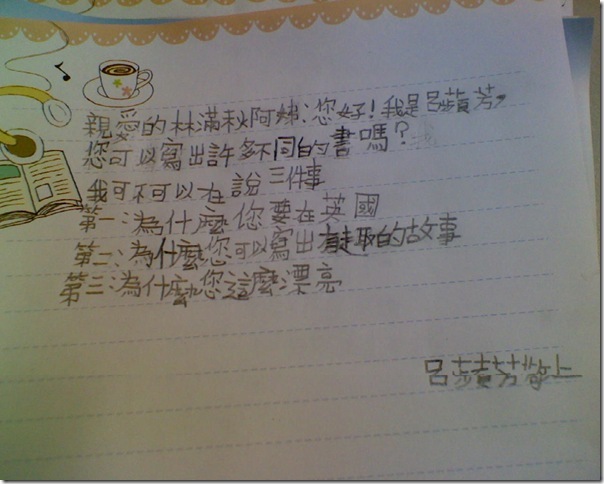 親愛的林滿秋阿姊:您好!我是呂蘋芳,
您可以寫出許多不同的書嗎?
我可不可以在說三件事
第一:為什麼您要在英國
第二:為什麼您可以寫出有趣的故事
第三:為什麼您這麼漂亮
呂蘋芳敬上